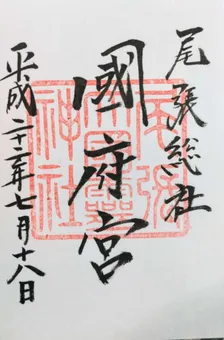 尾張総社
國府宮
平成二十二年七月十八日